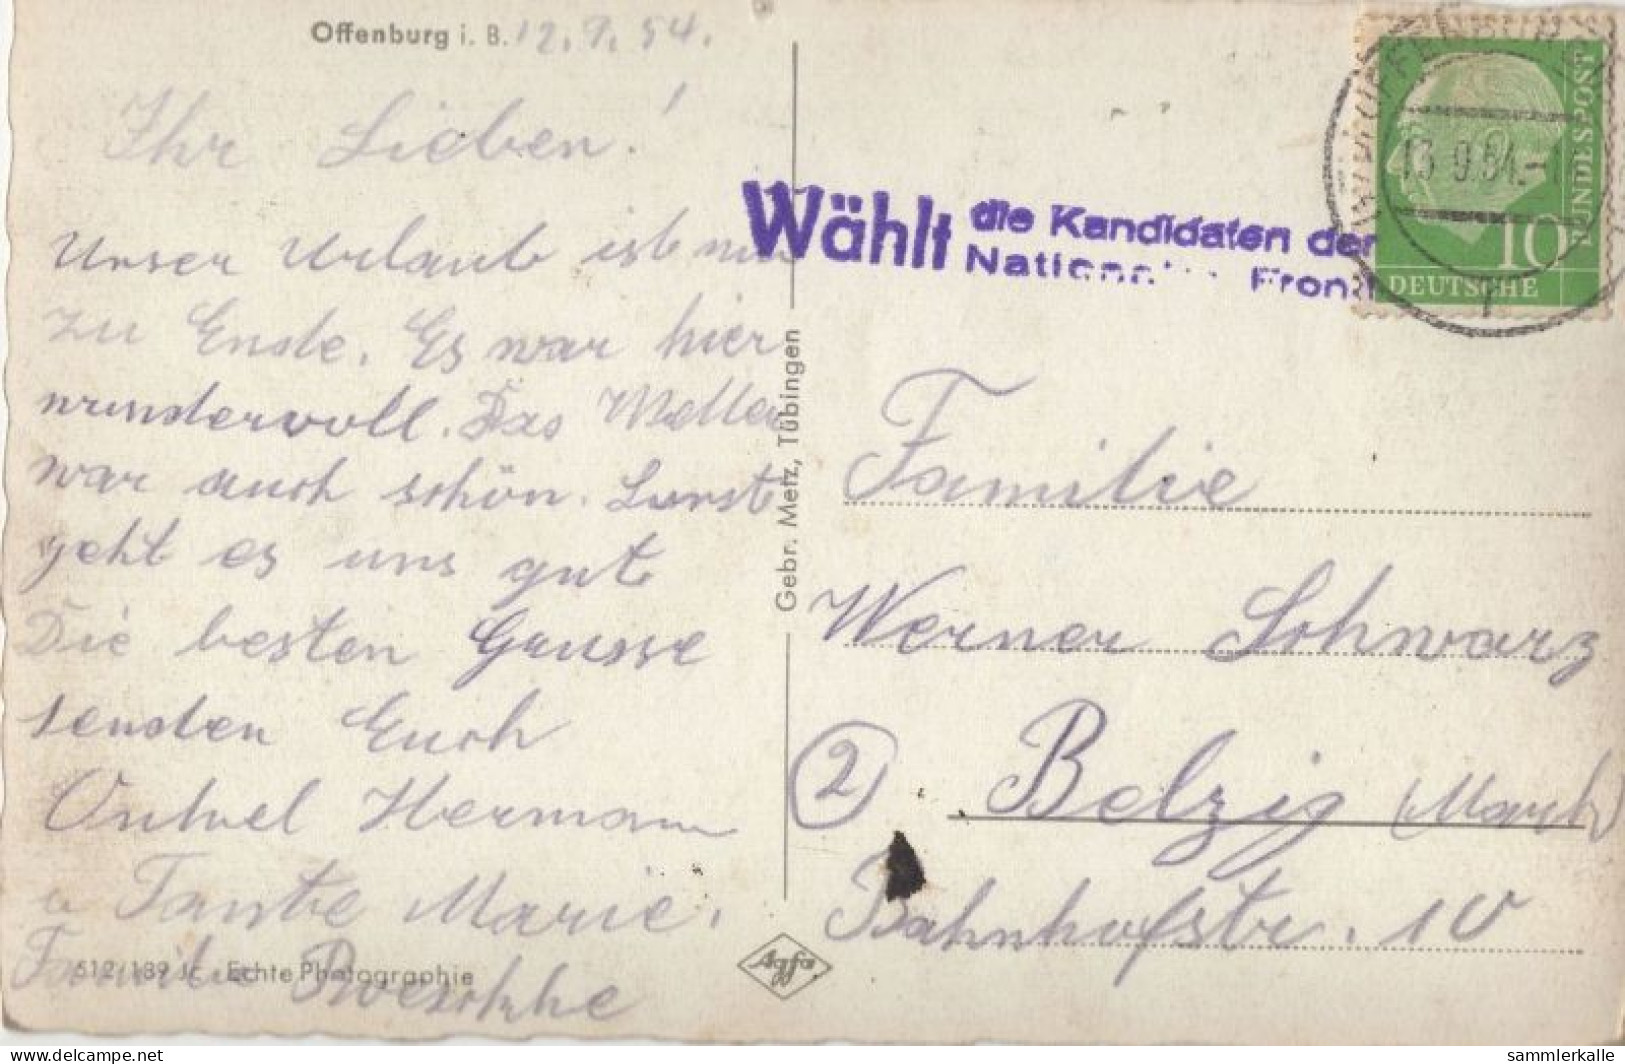 Offenburg i. B. 12. 9. 54.
Ihr Lieben!
Unser Urlaub ist nun
zu Ende. Es war hier
wundervoll. Das Wetter
war auch schön. Sonst
geht es uns gut
Die besten Grüsse
senden Euch
Onkel Hermann
u Tante Marie.
Familie
512/189 Jc Echte Photographie
Gebr. Metz, Tübingen
Agfa
Wählt die Kandidaten der
Nationalen Front
OFFENBURG
13.9.54.-1
DEUTSCHE
BUNDESPOST
10
Familie
Werner Schwarz
(2) Belzig (Mark)
Bahnhofstr. 10
https://www.delcampe.net
sammlerkalle